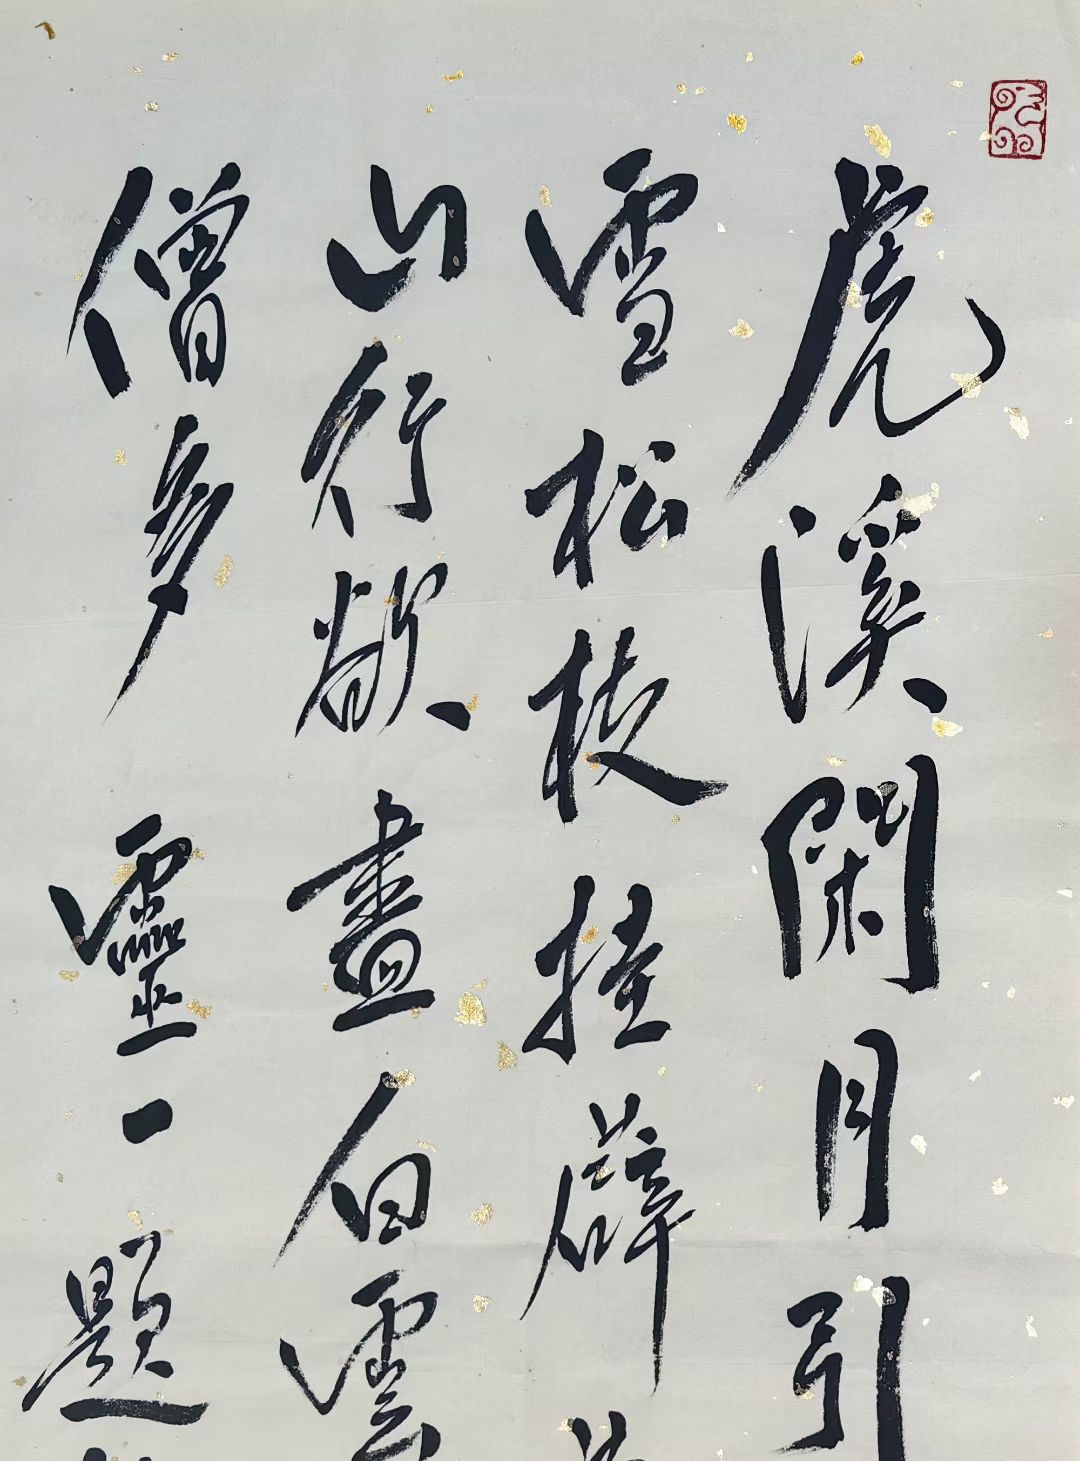 虎溪閑月引
雪松枝挂薜
山行欲盡白雲
僧多 靈一題